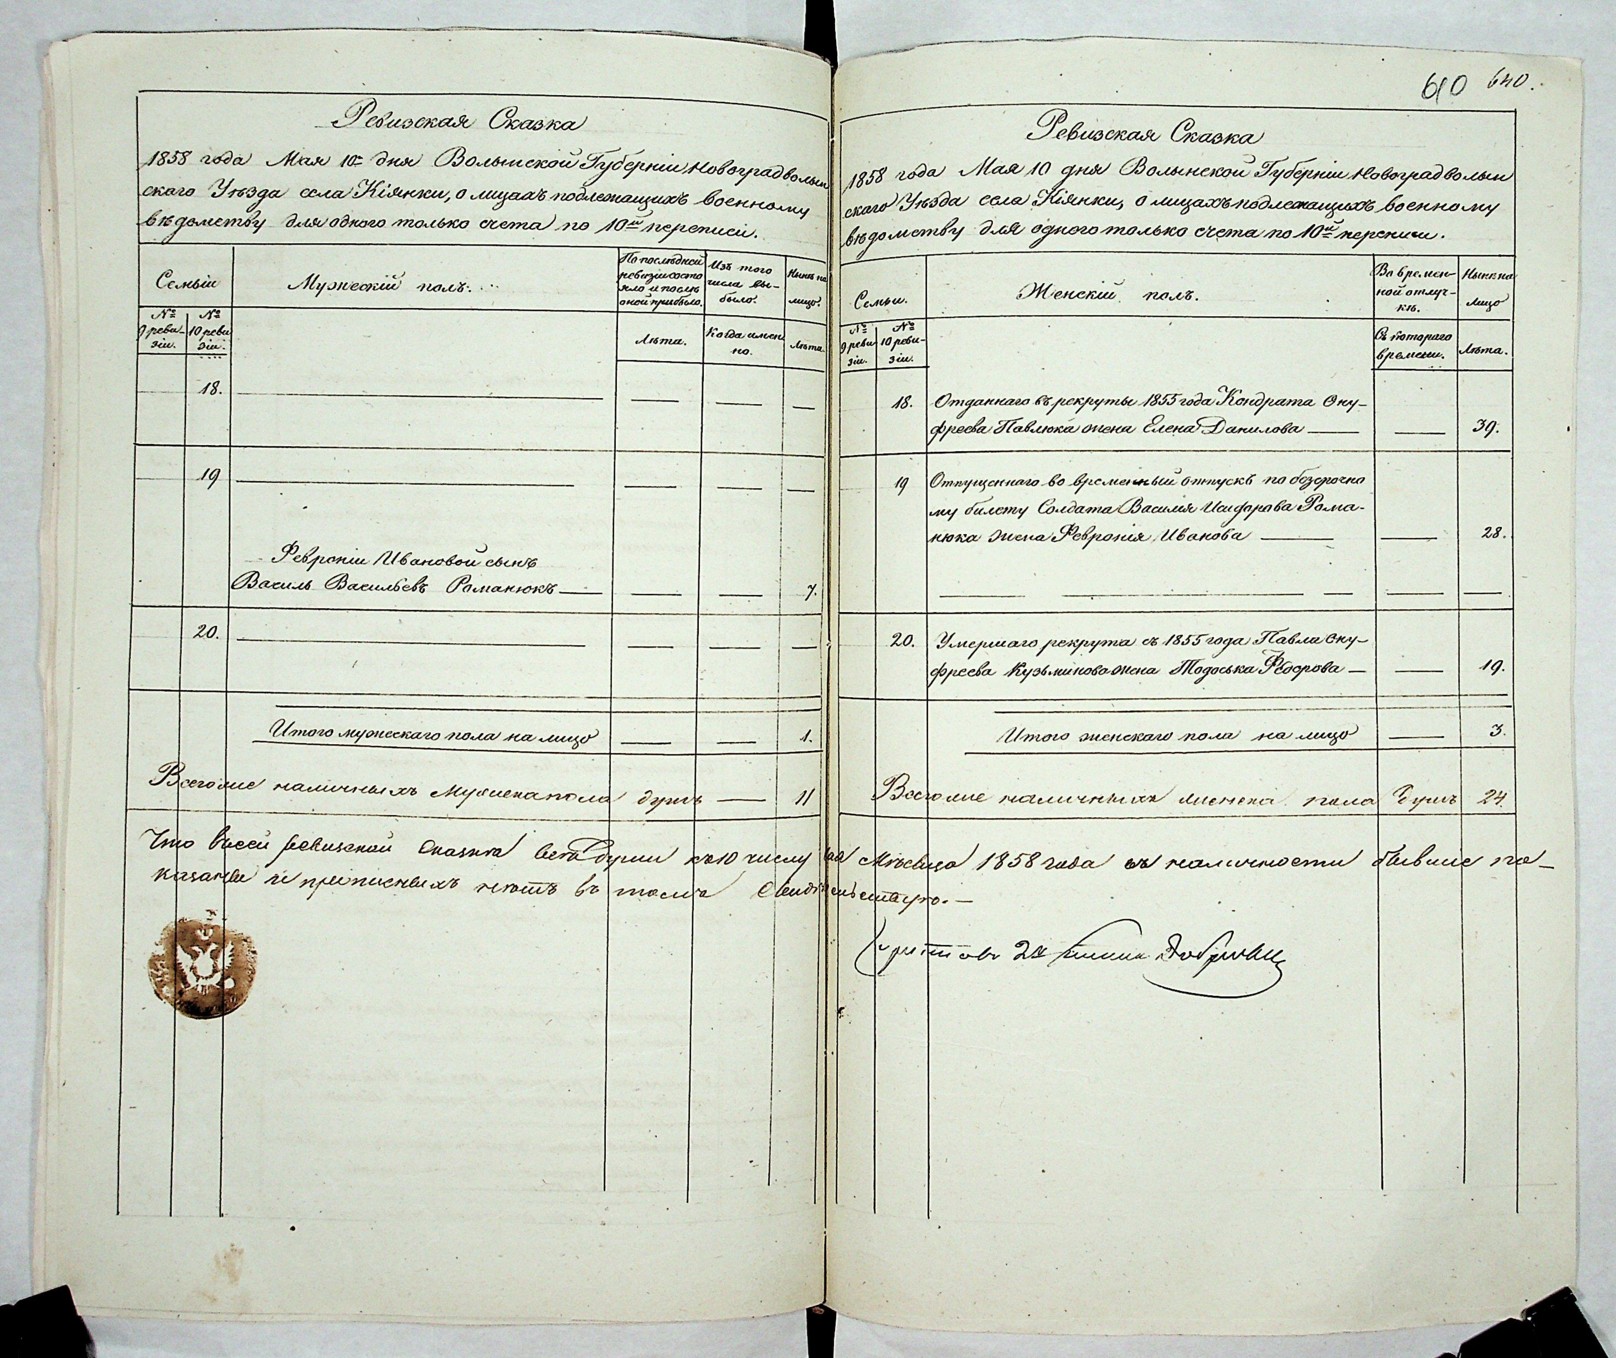 Ревизская Сказка
1858 года Мая 10го дня Волынской Губерніи Новоградволын
скаго Уѣзда села Кіянки, о лицахъ подлежащихъ военному
вѣдомству для одного только счета по 10й переписи.
Семьи
Мужескій полъ.
По послѣдней
ревизіи состо
яло и послѣ
оной прибыло.
Изъ того
числа вы-
было.
Нынѣ на
лицо.
№
9 реви-
зіи.
№
10 реви
зіи.
Лѣта.
Когда имен
но.
Лѣта.
18.
19
Февроніи Ивановой сынъ
Василь Васильевъ Романюкъ 7.
20.
Итого мужескаго пола на лицо 1.
Всего же наличныхъ Мужеска пола душъ 11
610 640.
Ревизская Сказка
1858 года Мая 10 дня Волынской Губерніи Новоградволын
скаго Уѣзда села Кіянки, о лицахъ подлежащихъ военному
вѣдомству для одного только счета по 10й переписи.
Семьи.
Женскій полъ.
Во времен-
ной отлуч-
кѣ.
Нынѣ на
лицо
№
9 реви
зіи.
№
10 реви-
зіи.
Съ котораго
времени.
Лѣта.
18. Отданнаго въ рекруты 1855 года Кондрата Ону-
фреева Павлюка жена Елена Данилова 39.
19 Отпущеннаго во временный отпускъ по безсрочно
му билету Солдата Василія Исидорова Рома-
нюка жена Февронія Иванова 28.
20. Умершаго рекрута съ 1855 года Павла Ону-
фреева Кузьминова жена Тодоська Федорова 19.
Итого женскаго пола на лицо 3.
Всего же наличныхъ женска пола душъ 24.
Что в сей ревизской сказке все души к 10 числу мая месяца 1858 года въ наличности бывшие по-
казаны и прописныхъ нетъ въ томъ свидетельствую.